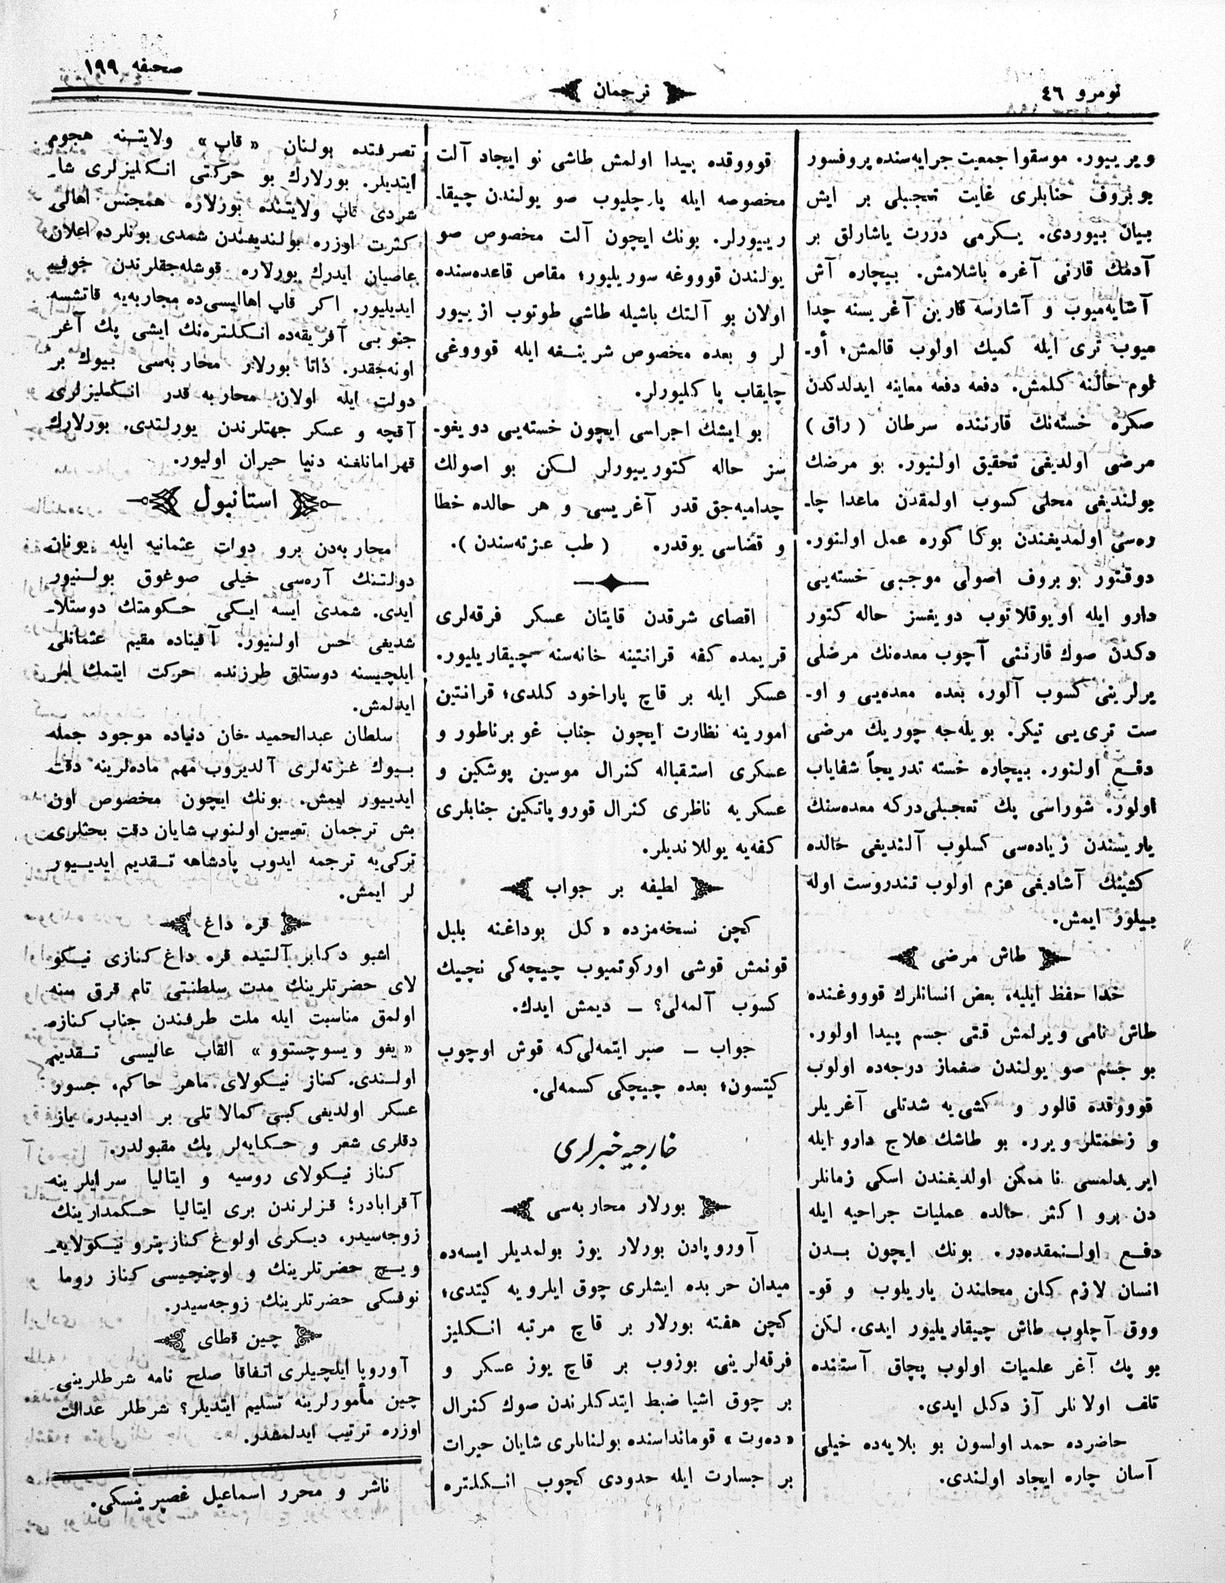 نومرو ٤٦
ترجمان
صحیفه ١٩٩
ویرییور. موسقوا جمعیت جرایه‌سنده پروفسور
بوبروف جنابلری غایت تعجبلی بر ایش
بیان بیوردی. یکرمی دورت یاشارلق بر
آدمك قارنی آغره باشلامش. بیچاره آش
آشایه‌میوب و آشارسه قارین آغریسنه چدا
میوب تری ایله کمیك اولوب قالمش؛ أو۔
لوم حالنه کلمش. دفعه دفعه معاینه ایدلدکدن
صکره خسته‌نك قارننده سرطان (راق)
مرضی اولدیغی تحقیق اولنیور. بو مرضك
بولندیغی محلی کسوب اولمقدن ماعدا چا۔
ره‌سی اولمدیغندن بوکا کوره عمل اولنور.
دوقتور بوبروف اصولی موجبی خسته‌یی
دارو ایله اویوقلاتوب دویغسز حاله کتور
دکدن صوك قارننی آچوب معده‌نك مرضلی
یرلرینی کسوب آلور، بعده معده‌یی و او۔
ست تری‌یی تیکر. بویله‌جه چوریك مرضی
دفع اولنور. بیچاره خسته تدریجاً شفایاب
اولور. شوراسی پك تعجبلی‌درکه معده‌سنك
یاریسندن زیاده‌سی کسلوب آلندیغی حالده
کشینك آشادیغی هضم اولوب تندروست اوله
بیلور ایمش.
طاش مرضی
خدا حفظ ایلیه، بعض انسانلرك قوووغنده
طاش نامی ویرلمش قتی جسم پیدا اولور.
بو جسم صو یولندن صغماز درجه‌ده اولوب
قوووقده قالور و کشی‌یه شدتلی آغریلر
و زحمتلر ویرر. بو طاشك علاج دارو ایله
ایریدلمسی نا ممکن اولدیغندن اسکی زمانلر
دن برو اکثر حالده عملیات جراحیه ایله
دفع اولنمقده‌در. بونك ایچون بدن
انسان لازم کان محلندن یاریلوب و قو۔
ووق آچلوب طاش چیقاریلیور ایدی. لکن
بو پك آغر علمیات اولوب پچاق آستنده
تلف اولانلر آز دکل ایدی.
حاضرده حمد اولسون بو بلایه‌ده خیلی
آسان چاره ایجاد اولندی.
قوووقده پیدا اولمش طاشی نو ایجاد آلت
مخصوصه ایله پارچلیوب صو یولندن چیقا۔
رییورلر. بونك ایچون آلت مخصوص صو
یولندن قوووغه سوریلیور؛ مقاص قاعده‌سنده
اولان بو آلتك باشیله طاشی طوتوب ازییور
لر و بعده مخصوص شرینسغه ایله قوووغی
چایقاب پاکلیورلر.
بو ایشك اجراسی ایچون خسته‌یی دویغو۔
سز حاله کتورییورلر لکن بو اصولك
چدامیه‌جق قدر آغریسی و هر حالده خطا
و قضاسی یوقدر. (طب غزته‌سندن).
اقصای شرقدن قایتان عسکر فرقه‌لری
قریمده کفه قرانتینه خانه‌سنه چیقاریلیور.
عسکر ایله بر قاچ پاراخود کلدی؛ قرانتین
امورینه نظارت ایچون جناب غوبرناطور و
عسکری استقباله کنرال موسین پوشکین و
عسکریه ناظری کنرال قوروپاتکین جنابلری
کفه‌یه یوللاندیلر.
لطیفه بر جواب
کچن نسخه‌مزده «کل بوداغنه بلبل
قونمش قوشی اورکوتمیوب چیچه‌کی نچیك
کسوب آلمه‌لی؟ ــ دیمش ایدك.
جواب ــ صبر ایتمه‌لی‌که قوش اوچوب
کیتسون؛ بعده چیچکی کسمه‌لی.
خارجیه خبرلری
بورلار محاربه‌سی
آوروپادن بورلار یوز بولمدیلر ایسه‌ده
میدان حربده ایشلری چوق ایلرویه کیتدی؛
کچن هفته بورلار بر قاچ مرتبه انکلیز
فرقه‌لرینی بوزوب بر قاچ یوز عسکر و
بر چوق اشیا ضبط ایتدکلرندن صوك کنرال
«ده‌وت» قومانداسنده بولنانلری شایان حیرات
بر جسارت ایله حدودی کچوب انکلتره
تصرفنده بولنان «قاپ» ولایتنه هجوم
ایتدیلر. بورلارك بو حرکتی انکلیزلری شا۔
شردی قاپ ولایتنده بورلاره همجنس اهالی
کثرت اوزره بولندیغندن شمدی بونلرده اعلان
عاصیان ایدرك بورلاره قوشله‌جقلرندن خوف
ایدیلیور. اکر قاپ اهالیسی‌ده محاربه‌یه قاتشسه
جنوبی آفریقه‌ده انکلتره‌نك ایشی پك آغر
اونه‌جقدر. ذاتا بورلار محاربه‌سی بیوك بر
دولت ایله اولان محاربه قدر انکلیزلری
آقچه و عسکر جهتلرندن یورلتدی. بورلارك
قهرامانلغنه دنیا حیران اولیور.
استانبول
محاربه‌دن برو دولت عثمانیه ایله یونان
دولتنك آره‌سی خیلی صوغوق بولنیور
ایدی. شمدی ایسه ایکی حکومتك دوستلا۔
شدیغی حس اولنیور. آفیناده مقیم عثمانلی
ایلچیسنه دوستلق طرزنده حرکت ایتمك امر
ایدلمش.
سلطان عبدالحمید خان دنیاده موجود جمله
بیوك غزته‌لری آلدیروب مهم ماده‌لرینه دقت
ایدییور ایمش. بونك ایچون مخصوص اون
بش ترجمان تعیین اولنوب شایان دقت بحثلری
ترکی‌یه ترجمه ایدوب پادشاهه تقدیم ایدییور
لر ایمش.
قره داغ
اشبو دکابر آلتیده قره داغ کنازی نیکو
لای حضرتلرینك مدت سلطنتی تام قرق سنه
اولمق مناسبت ایله ملت طرفندن جناب کنازه
«یغو ویسوچستوو» القاب عالیسی تقدیم
اولندی. کناز نیکولای ماهر حاکم، جسور
عسکر اولدیغی کبی کمالاتلی بر ادیبدر. یاز
دقلری شعر و حکایه‌لر پك مقبولدر.
کناز نیکولای روسیه و ایتالیا سرایلرینه
آقرابادر؛ قزلرندن بری ایتالیا حکمدارینك
زوجه‌سیدر، دیکری اولوغ کناز پترو نیکولایه۔
ویچ حضرتلرینك و اوچنچیسی کناز روما
نوفسکی حضرتلرینك زوجه‌سیدر.
چین قطای
آوروپا ایلچیلری اتفاقا صلح نامه شرطلرینی
چین مأمورلرینه تسلیم ایتدیلر؟ شرطلر عدالت
اوزره ترتیب ایدلمشدر.
ناشر و محرر اسماعیل غصپرینسکی.